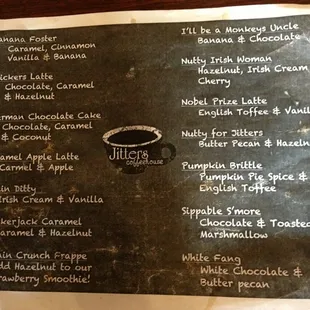 anana Foster
Caramel, Cinnamon
Vanilla & Banana
ickers Latte
Chocolate, Caramel
& Hazelnut
erman Chocolate Cake
Chocolate, Caramel
& Coconut
amel Apple Latte
Carmel & Apple
in Ditty
rish Cream & Vanilla
kerjack Caramel
aramel & Hazelnut
ain Crunch Frappe
dd Hazelnut to our
rawberry Smoothie!
Jitters
coffeehouse
I'll be a Monkeys Uncle
Banana & Chocolate
Nutty Irish Woman
Hazelnut, Irish Cream
Cherry
Nobel Prize Latte
English Toffee & Vanill
Nutty for Jitters
Butter Pecan & Hazeln
Pumpkin Brittle
Pumpkin Pie Spice &
English Toffee
Sippable S'more
Chocolate & Toasted
Marshmallow
White Fang
White Chocolate &
Butter pecan